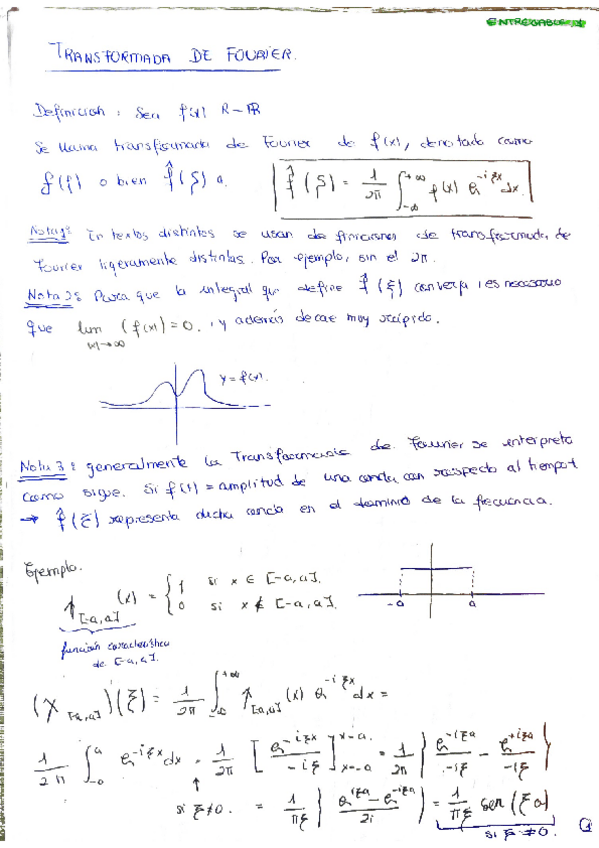 ENTREGABLE 1
TRANSFORMADA DE FOURIER.
Definicion: Sea f(x) R-ℝ
Se llama transformada de Fourier de f(x), denotado como
f(ξ) o bien f̂(ξ) a. f̂(ξ) = 1/2π ∫_{-∞}^{+∞} f(x) e^{-iξx} dx.
Nota 1: En textos distintos se usan definiciones de transformada de
Fourier ligeramente distintas. Por ejemplo, sin el 2π.
Nota 2: Para que la integral que define f̂(ξ) converja, es necesario
que lim_{|x|→∞} (f(x)) = 0. , y además decae muy rápido.
y = f(x).
Nota 3: generalmente la Transformada de Fourier se interpreta
como sigue. Si f(t) = amplitud de una onda con respecto al tiempo t
→ f̂(ξ) representa dicha onda en el dominio de la frecuencia.
Ejemplo.
1_{[-a,a]} (x) = { 1 si x ∈ [-a,a]. 0 si x ∉ [-a,a].
-a a
función característica
de [-a,a].
(χ_{[-a,a]})(ξ) = 1/2π ∫_{-∞}^{+∞} 1_{[-a,a]}(x) e^{-iξx} dx =
1/2π ∫_{-a}^{a} e^{-iξx} dx = 1/2π [e^{-iξx}/-iξ]_{x=-a}^{x=a} = 1/2π { e^{-iξa}/-iξ - e^{+iξa}/-iξ }
si ξ≠0. = 1/πξ { e^{iξa} - e^{-iξa}/2i } = 1/πξ sen(ξa)
si ξ≠0.